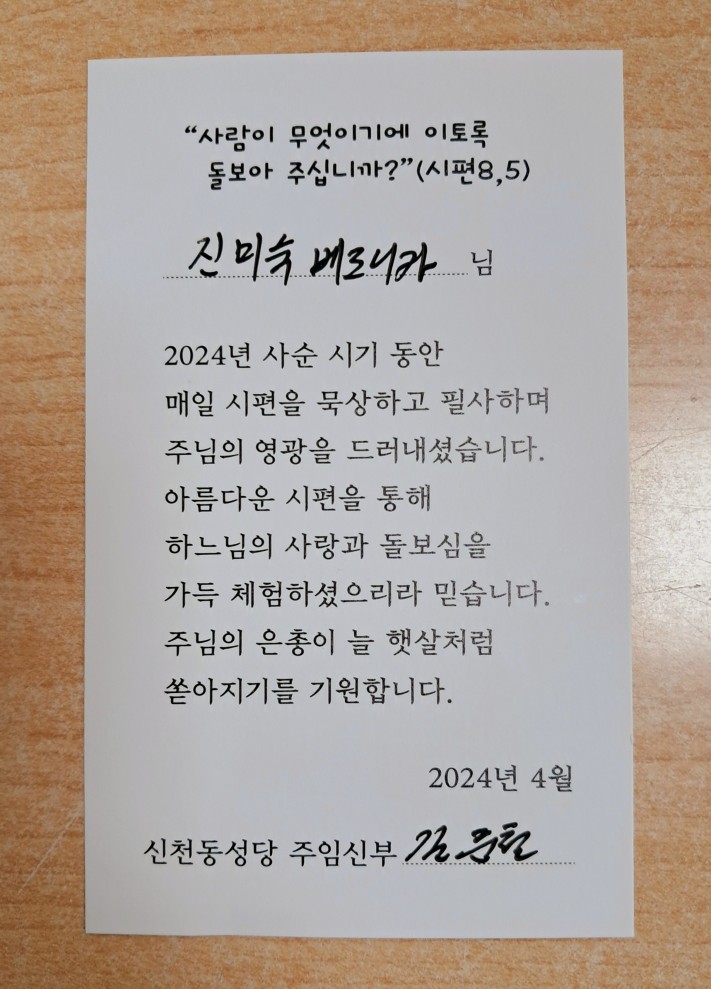 “사람이 무엇이기에 이토록
돌보아 주십니까?”(시편8,5)
진미숙 베로니카 님
2024년 사순 시기 동안
매일 시편을 묵상하고 필사하며
주님의 영광을 드러내셨습니다.
아름다운 시편을 통해
하느님의 사랑과 돌보심을
가득 체험하셨으리라 믿습니다.
주님의 은총이 늘 햇살처럼
쏟아지기를 기원합니다.
2024년 4월
신천동성당 주임신부